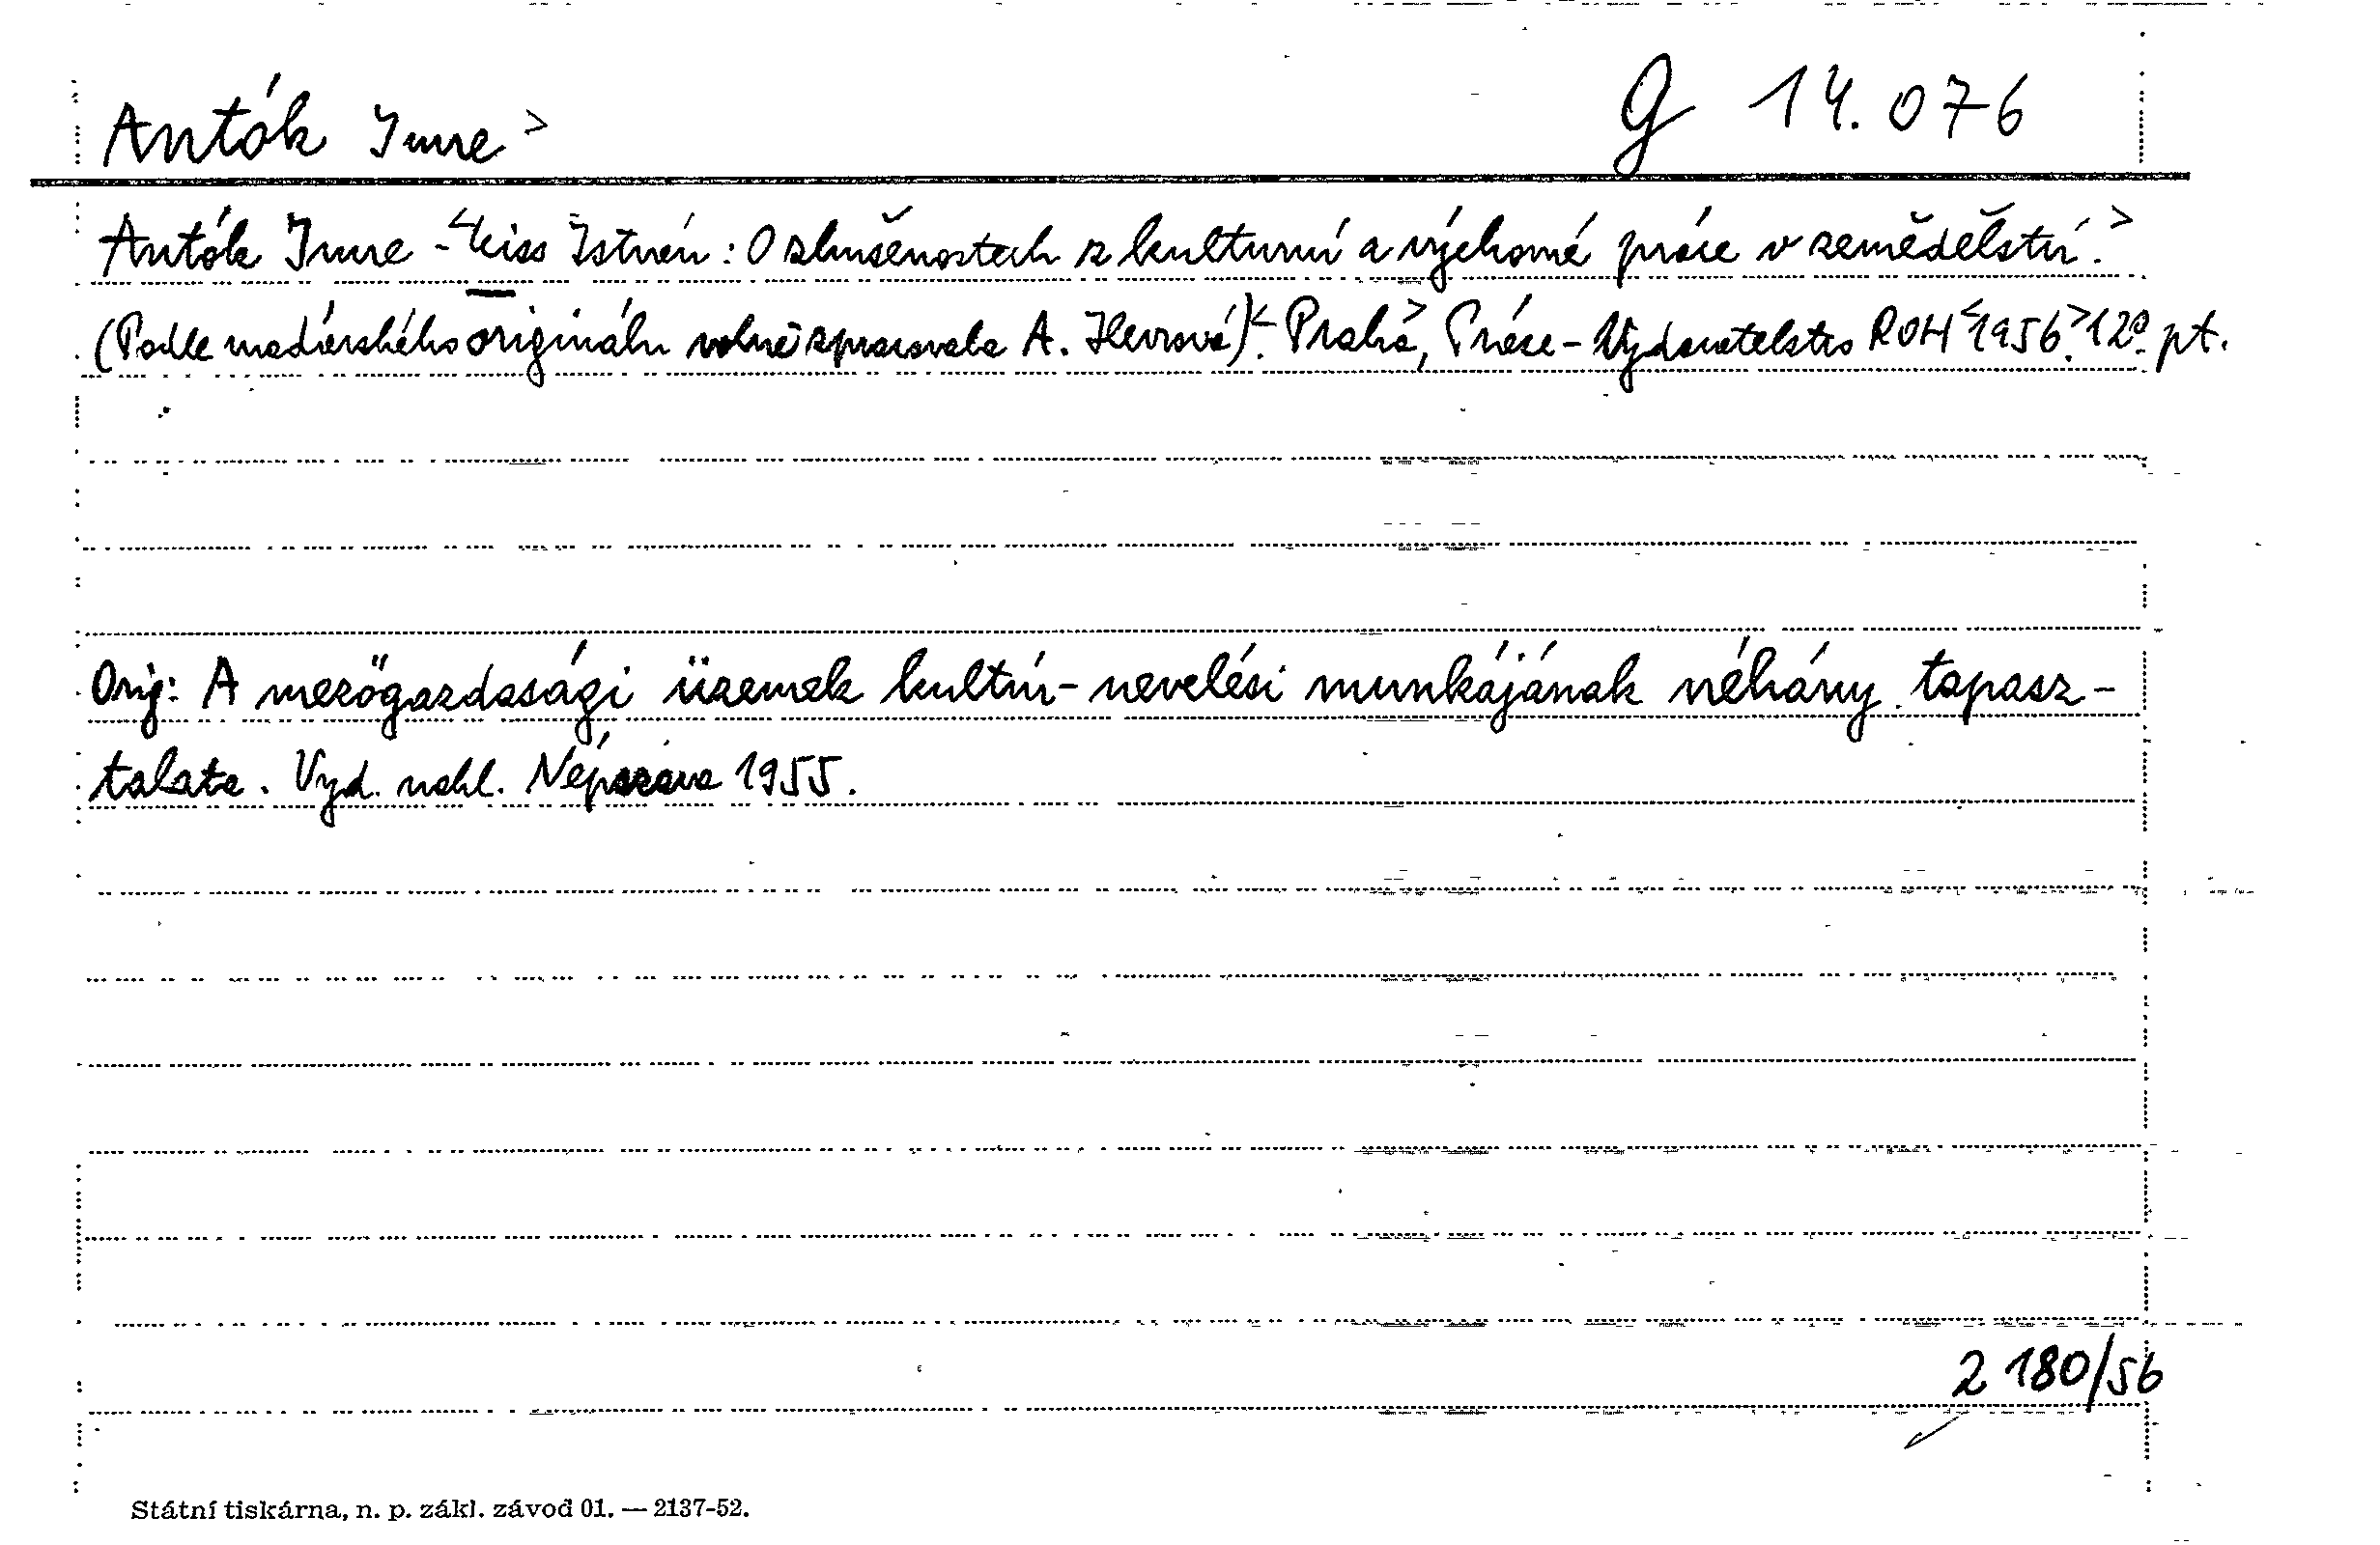 Antók Imre > G 14.076
Antók Imre - <Kiss István: O zkušenostech z kulturní a výchovné práce v zemědělství.>
(Podle maďarského originálu volně zpracovala A. Hevrová).< Praha>, Práce - Vydavatelstvo ROH <1956.> 12°. pt.
Orig: A mezőgazdasági üzemek kultúr-nevelési munkájának néhány tapasz-
talata. Vyd. nakl. Népszava 1955.
2 180/56
Státní tiskárna, n. p. zákl. závod 01. — 2137-52.